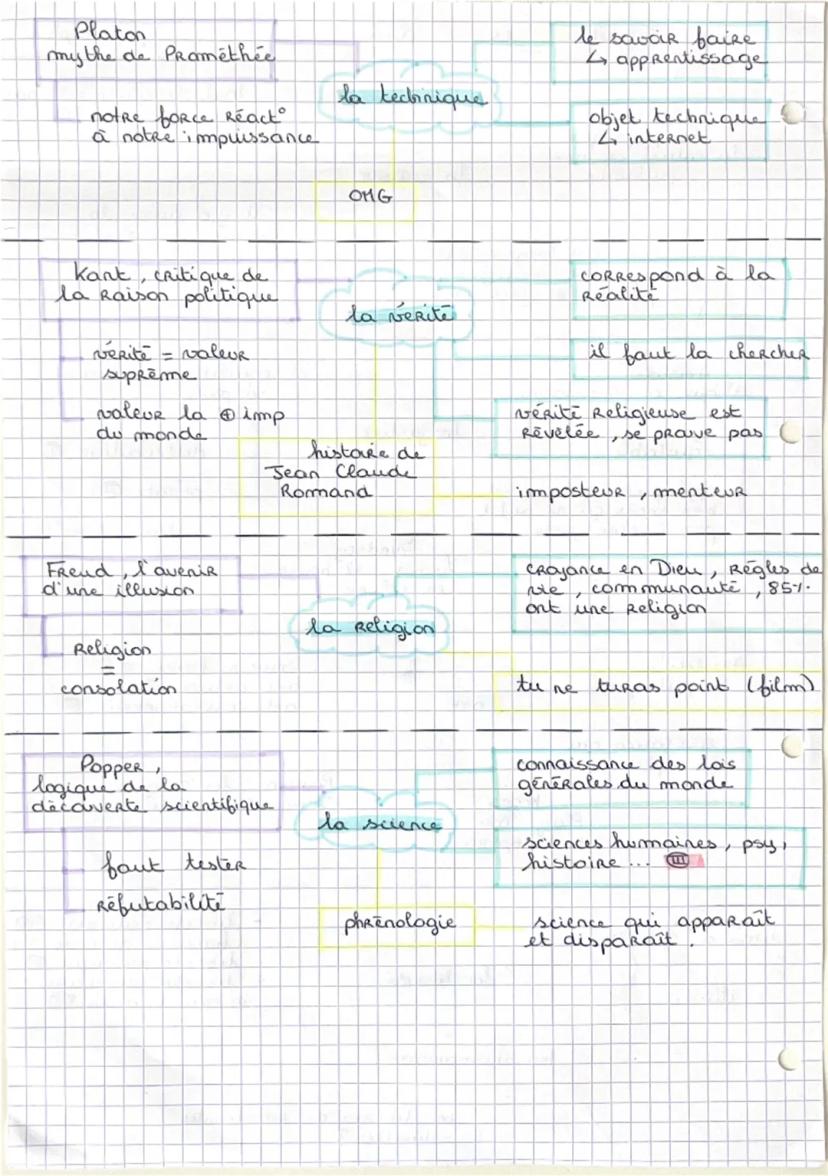 Platon
mythe de Prométhée
notre force réact°
à notre impuissance
la technique
le savoir faire
↳ apprentissage
objet technique
↳ internet
OMG
Kant, critique de
la raison politique
vérité = valeur
suprême
valeur la ⊕ imp
du monde
la vérité
correspond à la
réalité
il faut la chercher
vérité religieuse est
révélée, se prouve pas
histoire de
Jean Claude
Romand
imposteur, menteur
Freud, l'avenir
d'une illusion
religion
=
consolation
la religion
croyance en Dieu, règles de
vie, communauté, 85%
ont une religion
tu ne turas point (film)
Popper,
logique de la
découverte scientifique
faut tester
réfutabilité
la science
connaissance des lois
générales du monde
sciences humaines, psy,
histoire... III
phrénologie
science qui apparaît
et disparaît.